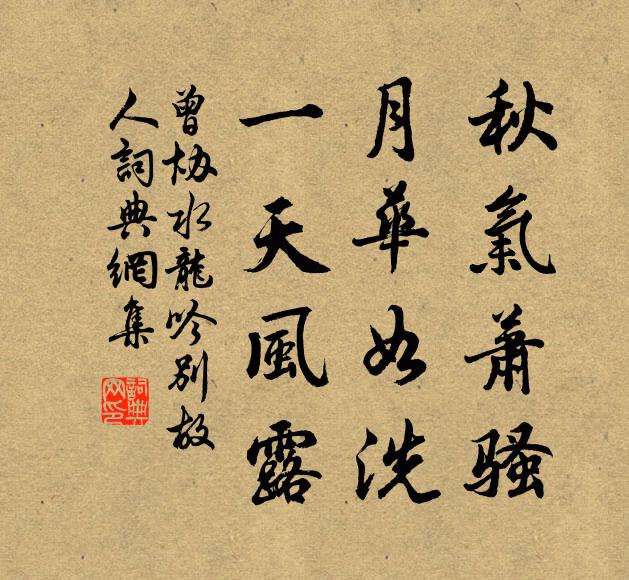 秋氣蕭騷
月華如洗
一天風露
曾協水龍吟別故
人詞典網集
詞典
网印